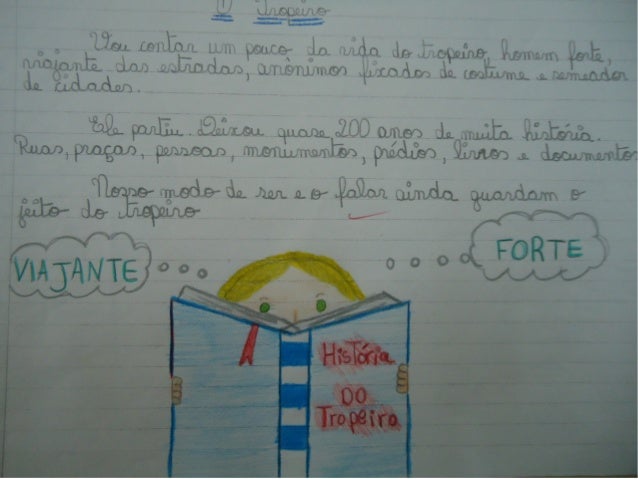 O Tropeiro
Vou contar um pouco da vida do tropeiro, homem forte,
viajante das estradas, anônimos fixador de costume e semeador
de cidades.
Ele partiu. Deixou quase 200 anos de muita história.
Ruas, praças, pessoas, monumentos, prédios, livros e documentos
Nosso modo de ser e o falar ainda guardam o
jeito do tropeiro
VIAJANTE
FORTE
História
DO
Tropeiro